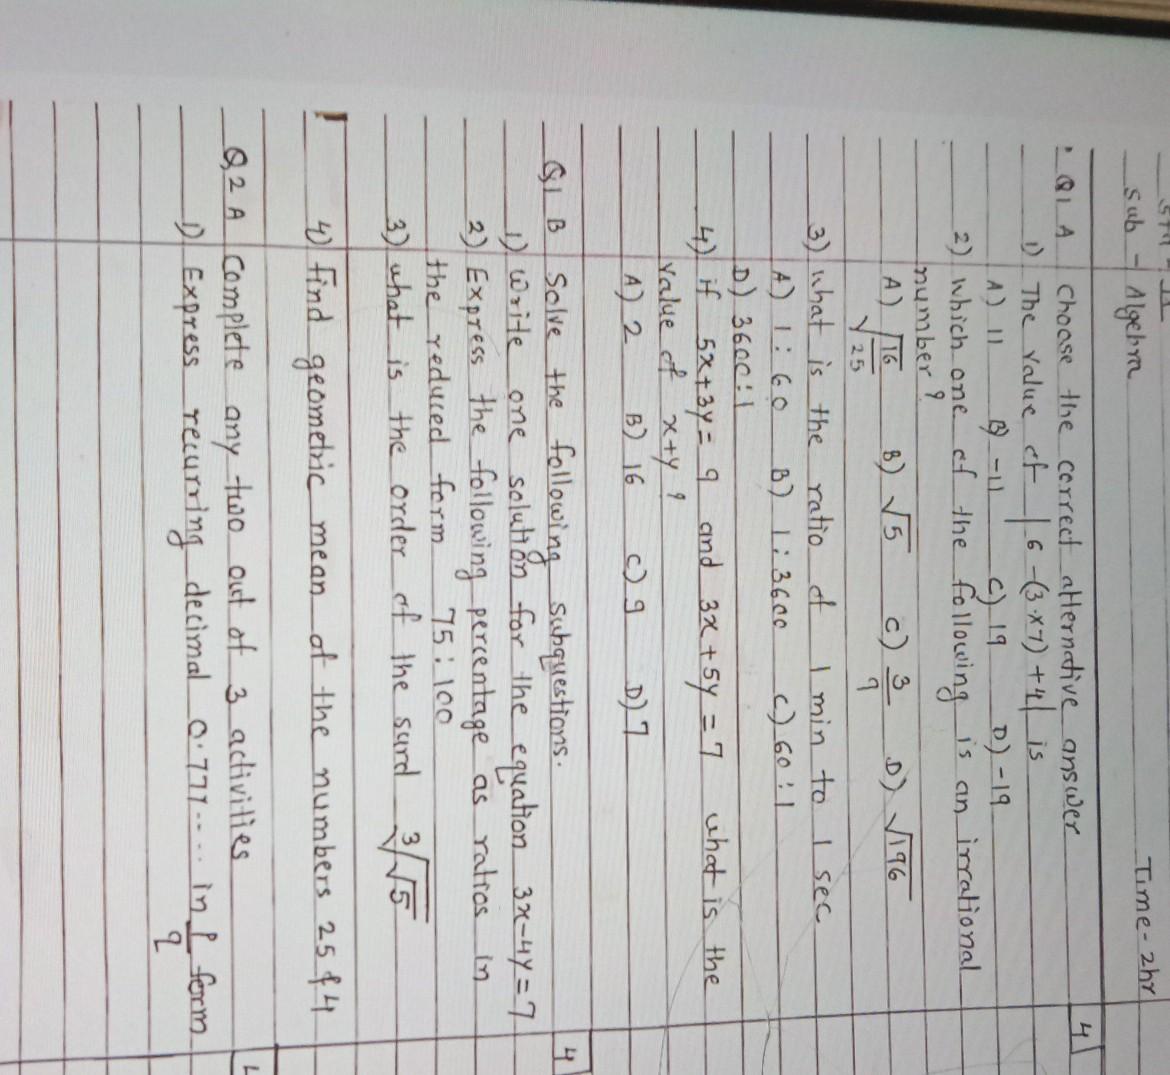 Sub - Algebra
Time - 2hr
Q1 A Choose the correct alternative answer 4
1) The value of |6 - (3×7) + 4| is
A) 11 B) -11 C) 19 D) -19
2) which one of the following is an irrational
number ?
A) √16/√25 B) √5 C) 3/9 D) √196
3) what is the ratio of 1 min to 1 sec
A) 1 : 60 B) 1 : 3600 C) 60 : 1
D) 3600 : 1
4) if 5x+3y = 9 and 3x + 5y = 7 what is the
value of x+y ?
A) 2 B) 16 C) 9 D) 7
Q1 B Solve the following subquestions. 4
1) Write one solution for the equation 3x-4y=7
2) Express the following percentage as ratios in
the reduced form 75 : 100
3) what is the order of the surd ³√√5
4) find geometric mean of the numbers 25 & 4
Q2 A Complete any two out of 3 activities
1) Express recurring decimal 0.777.... in p/q form